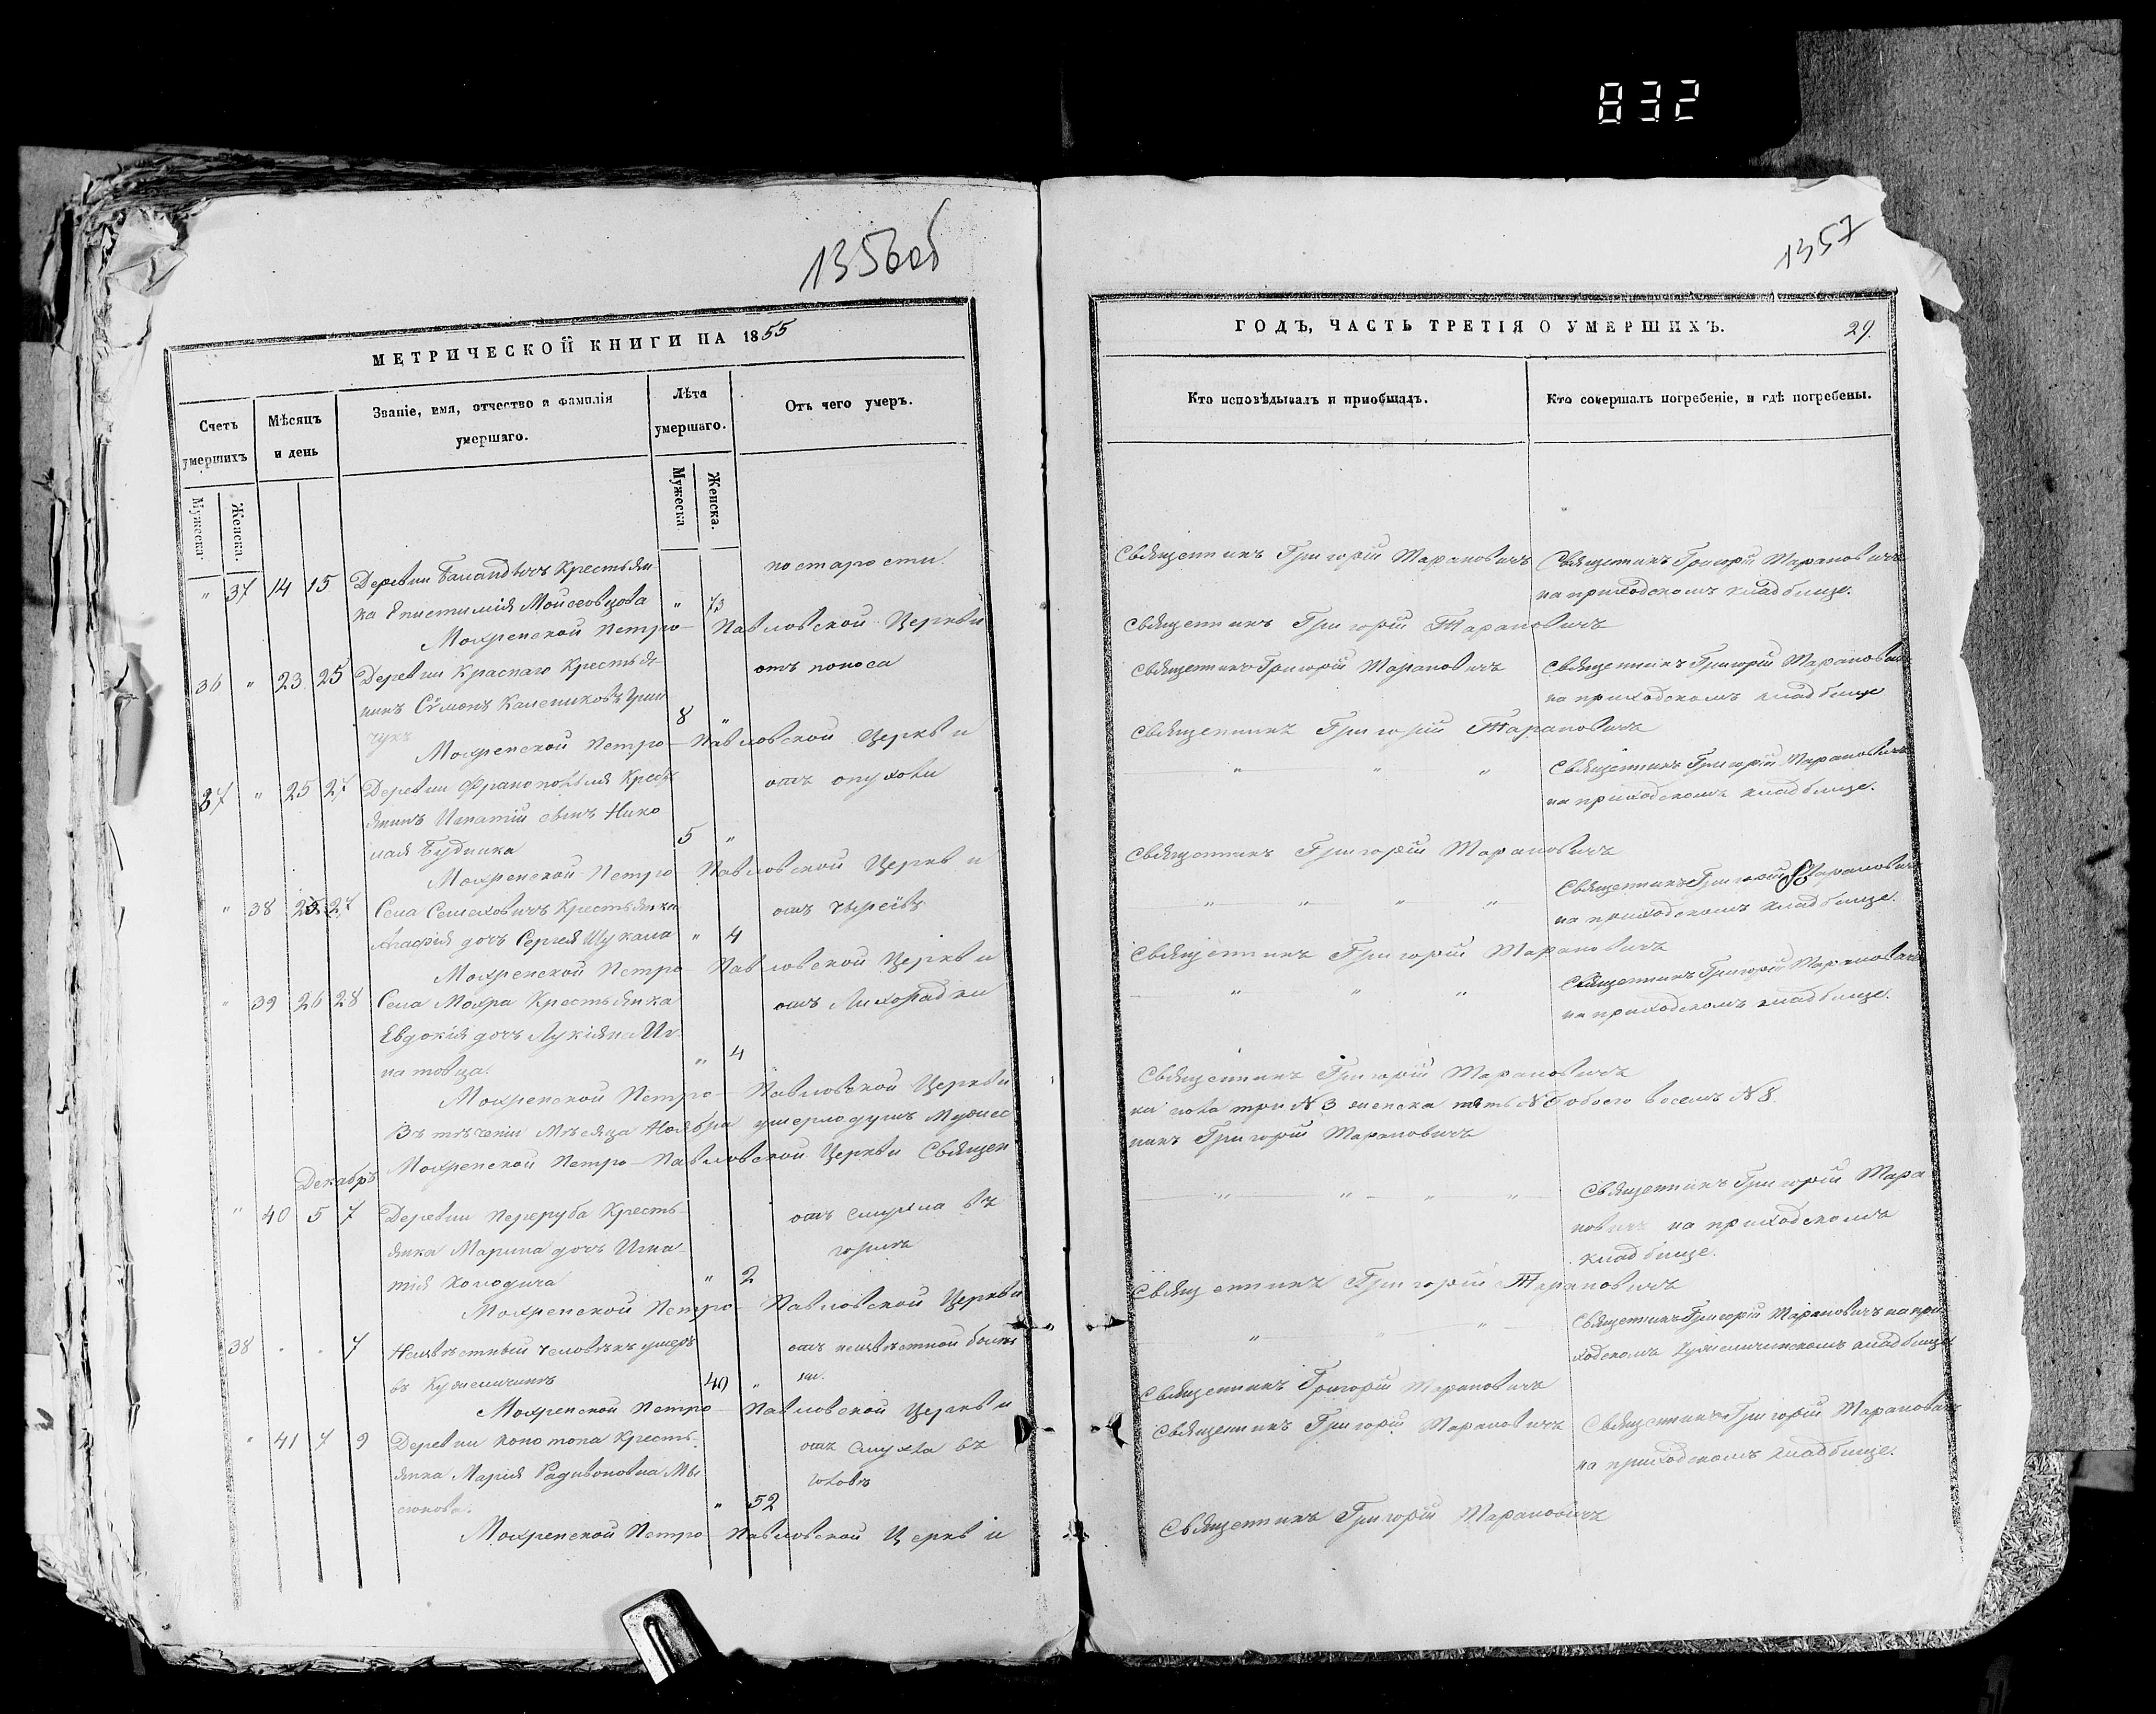 832
1356об
1357
МЕТРИЧЕСКОЙ КНИГИ НА 1855
Счетъ умершихъ
Мѣсяцъ и день
Званіе, имя, отчество и фамилія умершаго.
Лѣта умершаго.
Отъ чего умеръ.
Мужеска.
Женска.
Мужеска
Женска.
" 37 14 15 Деревни Баландичъ Крестьян- по старости.
ка Епистимія Моисеовцова " 73
Мохренской Петро-Павловской Церкви
36 " 23 25 Деревни Краснаго Крестья- отъ поноса
нинъ Сѵмонъ Калениковъ Гри
чукъ 8 "
Мохренской Петро-Павловской Церкви
37 " 25 27 Деревни Франополья Крест отъ опухоли
янинъ Игнатій сынъ Нико
лая Будника 5 "
Мохренской Петро-Павловской Церкви
" 38 25 27 Села Семеховичъ Крестьянка отъ
Агафія дочь Сергея Шукала " 4
Мохренской Петро-Павловской Церкви
" 39 26 28 Села Мохра Крестьянка отъ Лихорадки
Евдокія дочь Лукіяна Иг-
натовца. " 4
Мохренской Петро-Павловской Церкви
Въ тѣченіи Мѣсяца Ноября умерло душъ Мужес
Мохренской Петро-Павловской Церкви Священ
Декабрь
" 40 5 7 Деревни Переруба Кресть- отъ въ
янка Марина дочь Игна- горлѣ
тія Колодича " 2
Мохренской Петро-Павловской Церкви
38 . . 7 Неизвѣстный человѣкъ умеръ отъ неизвѣстной болѣз
въ Кужеличинѣ 40 " ни.
Мохренской Петро-Павловской Церкви
" 41 7 9 Деревни Конотопа Кресть- отъ въ
янка Марія Радивоновна Мы-
сюкова. " 52
Мохренской Петро-Павловской Церкви
ГОДЪ, ЧАСТЬ ТРЕТІЯ О УМЕРШИХЪ.
29.
Кто исповѣдывалъ и пріобщалъ.
Кто совершалъ погребеніе, и гдѣ погребены.
Священникъ Григорій Тарановичъ Священникъ Григорій Тарановичъ
на приходскомъ кладбище.
Священникъ Григорій Тарановичъ
Священникъ Григорій Тарановичъ Священникъ Григорій Тарановичъ
на приходскомъ кладбище
Священникъ Григорій Тарановичъ
" " " Священникъ Григорій Тарановичъ
на приходскомъ кладбище.
Священникъ Григорій Тарановичъ
" " " " Священникъ Григорій Тарановичъ
на приходскомъ кладбище.
Священникъ Григорій Тарановичъ
" " " Священникъ Григорій Тарановичъ
на приходскомъ кладбище.
Священникъ Григорій Тарановичъ
ка пола три N 3 женска пять N 5 обоего восемь N 8.
никъ Григорій Тарановичъ
" " " " Священникъ Григорій Тара
новичъ на приходскомъ
кладбище.
Священникъ Григорій Тарановичъ
" " " Священникъ Григорій Тарановичъ на при
ходскомъ Кужеличинскомъ кладбище
Священникъ Григорій Тарановичъ
Священникъ Григорій Тарановичъ Священникъ Григорій Тарановичъ
на приходскомъ кладбище.
Священникъ Григорій Тарановичъ